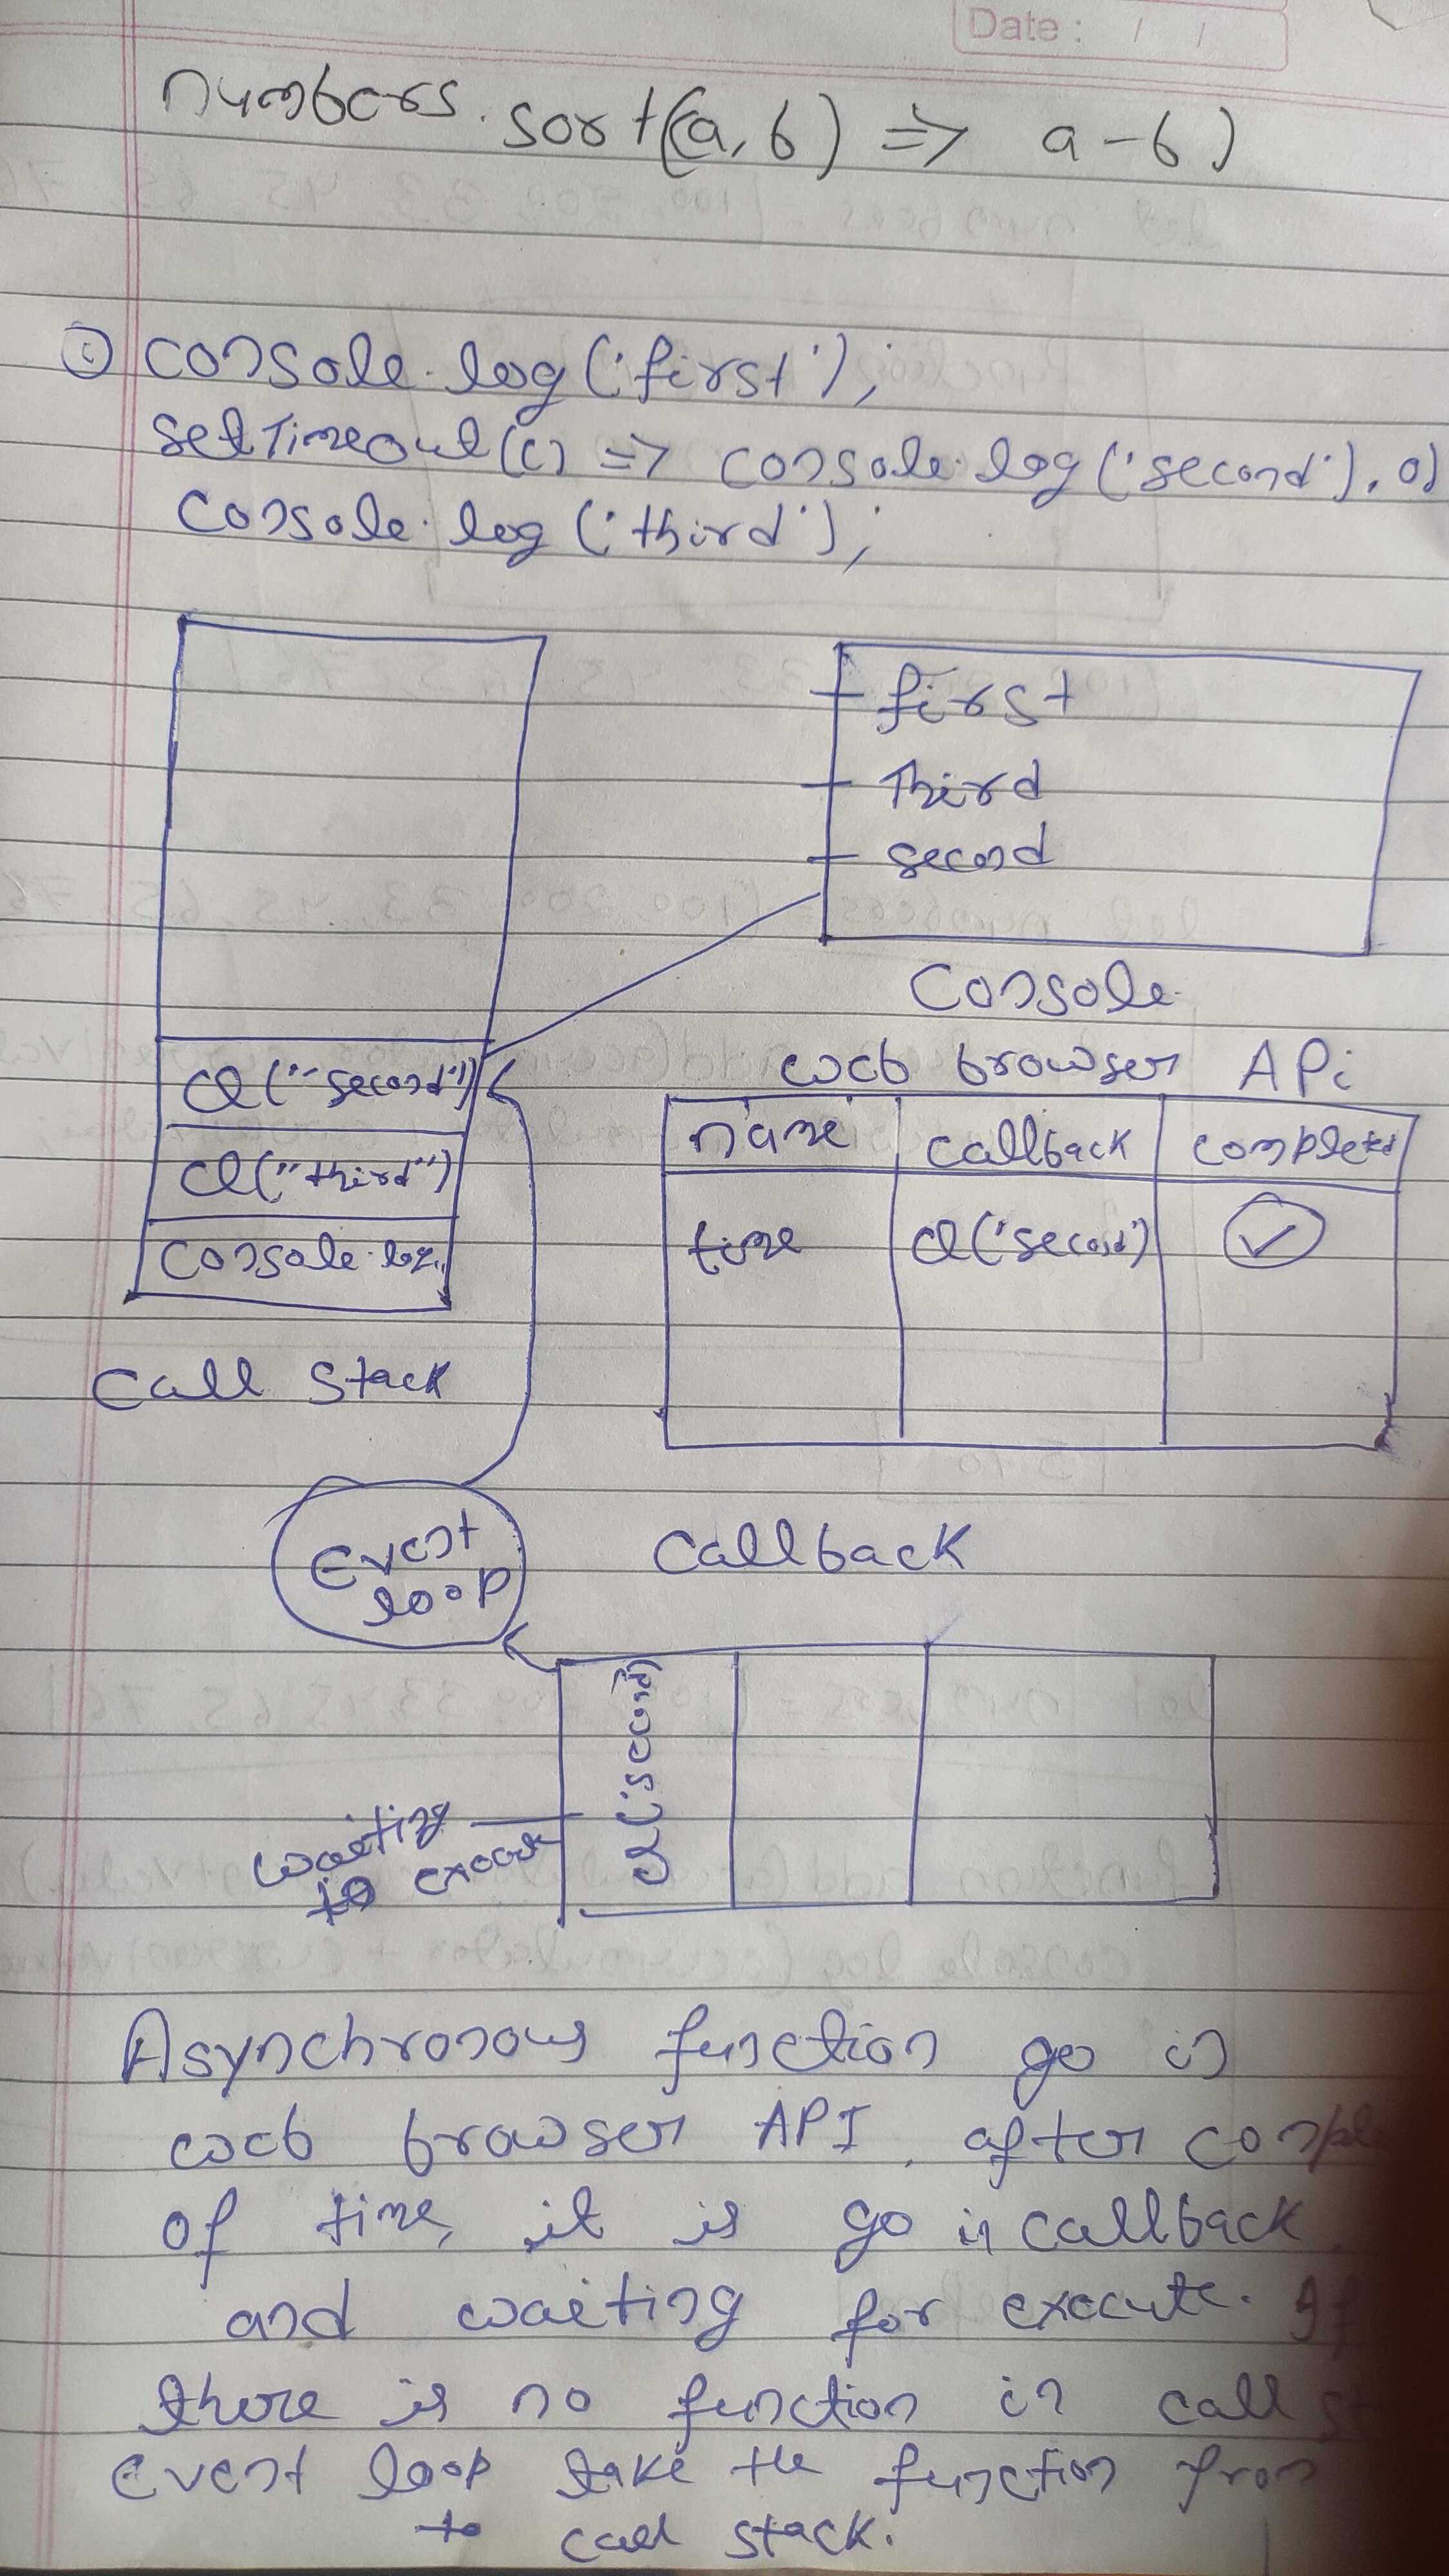 Date : / /
numbers.sort((a, b) => a-b)
① console.log('first');
setTimeout(() => console.log('second'), 0)
console.log('third');
first
Third
second
Console
cl("second")
cl("third")
console.log
Call Stack
web browser APi
name callback completed
time cl('second') ✓
Event
loop
Callback
cl('second)
waiting
to execute
Asynchronous function go in
web browser API, after
of time, it is go in callback
and waiting for execute. If
there is no function in call
Event loop take the function from
to call stack.